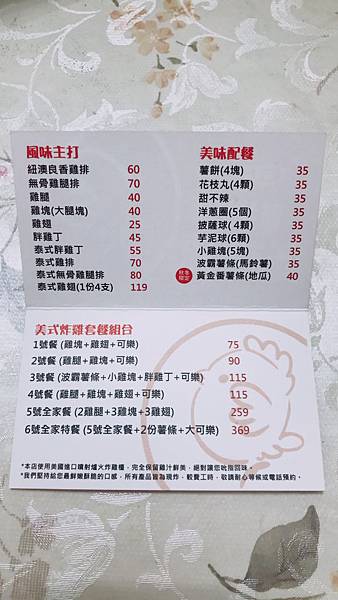 風味主打
紐澳良香雞排 60
無骨雞腿排 70
雞腿 40
雞塊(大腿塊) 40
雞翅 25
胖雞丁 45
泰式胖雞丁 55
泰式雞排 70
泰式無骨雞腿排 80
泰式雞翅(1份4支) 119
美味配餐
薯餅(4塊) 35
花枝丸(4顆) 35
甜不辣 35
洋蔥圈(5個) 35
披薩球(4顆) 35
芋泥球(6顆) 35
小雞塊(5塊) 35
波霸薯條(馬鈴薯) 35
黃金番薯條(地瓜) 40
美式炸雞套餐組合
1號餐 (雞塊+雞翅+可樂) 75
2號餐 (雞腿+雞塊+可樂) 90
3號餐 (波霸薯條+小雞塊+胖雞丁+可樂) 115
4號餐 (雞腿+雞塊+雞翅+可樂) 115
5號全家餐 (2雞腿+3雞塊+3雞翅) 259
6號全家特餐 (5號全家餐+2份薯條+大可樂) 369
*本店使用美國進口噴射爐火炸雞爐，完全保留雞汁鮮美，絕對讓您吮指回味。
*我們堅持給您最鮮嫩酥脆的口感，所有產品皆為現炸，較費工時，敬請耐心等候或電話預約。